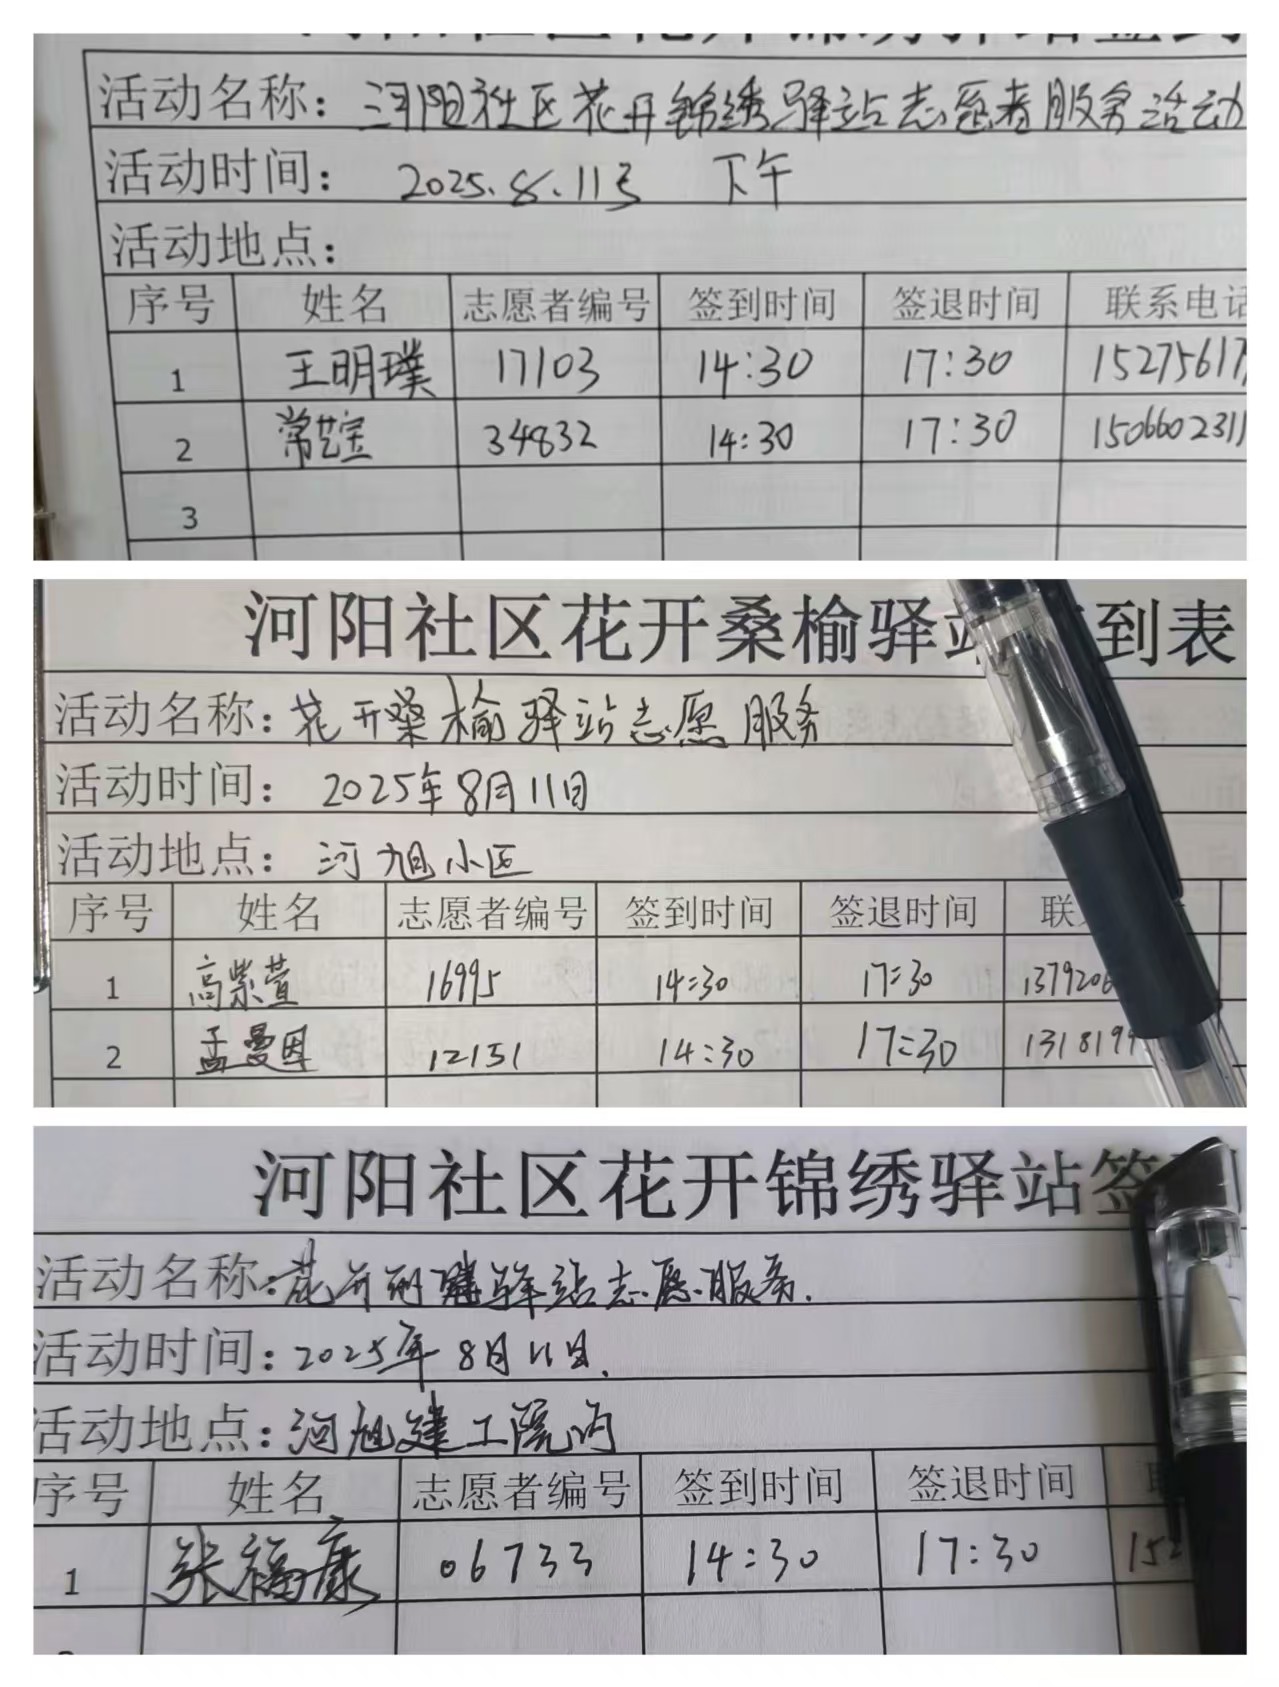 河阳社区花开锦绣驿站签到
活动名称：河阳社区花开锦绣驿站志愿者服务活动
活动时间： 2025.8.11号 下午
活动地点：
序号 姓名 志愿者编号 签到时间 签退时间 联系电话
1 王明璞 17103 14:30 17:30 15275617
2 常艺宝 34832 14:30 17:30 1506602311
3
河阳社区花开桑榆驿站 到表
活动名称：花开桑榆驿站志愿服务
活动时间： 2025年8月11日
活动地点： 河旭小区
序号 姓名 志愿者编号 签到时间 签退时间 联
1 高紫萱 16995 14:30 17:30 137920
2 孟曼因 12151 14:30 17:30 1318199
河阳社区花开锦绣驿站签
活动名称：花开 驿站志愿服务.
活动时间：2025年8月11日.
活动地点：河旭建工院内
序号 姓名 志愿者编号 签到时间 签退时间
1 张福康 06733 14:30 17:30 152